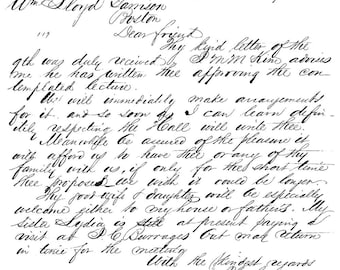 Wm Lloyd Garrison
Boston
Dear friend
Thy kind letter of the
9th was duly received & J M McKim advises
me he has written thee approving the con-
templated lecture.
We will immediately make arrangements
for it, and so soon as I can learn defin-
itely respecting the Hall will write thee.
Meanwhile be assured of the pleasure it
will afford us to have thee or any of thy
family with us, if only for the short time
thee proposes, we wish it could be longer
Thy good wife & daughter will be especially
welcome either to my house or fathers. My
sister Lydia is still at present paying a
visit at J C Burrages but may return
in time for the meeting
With the kindest regards